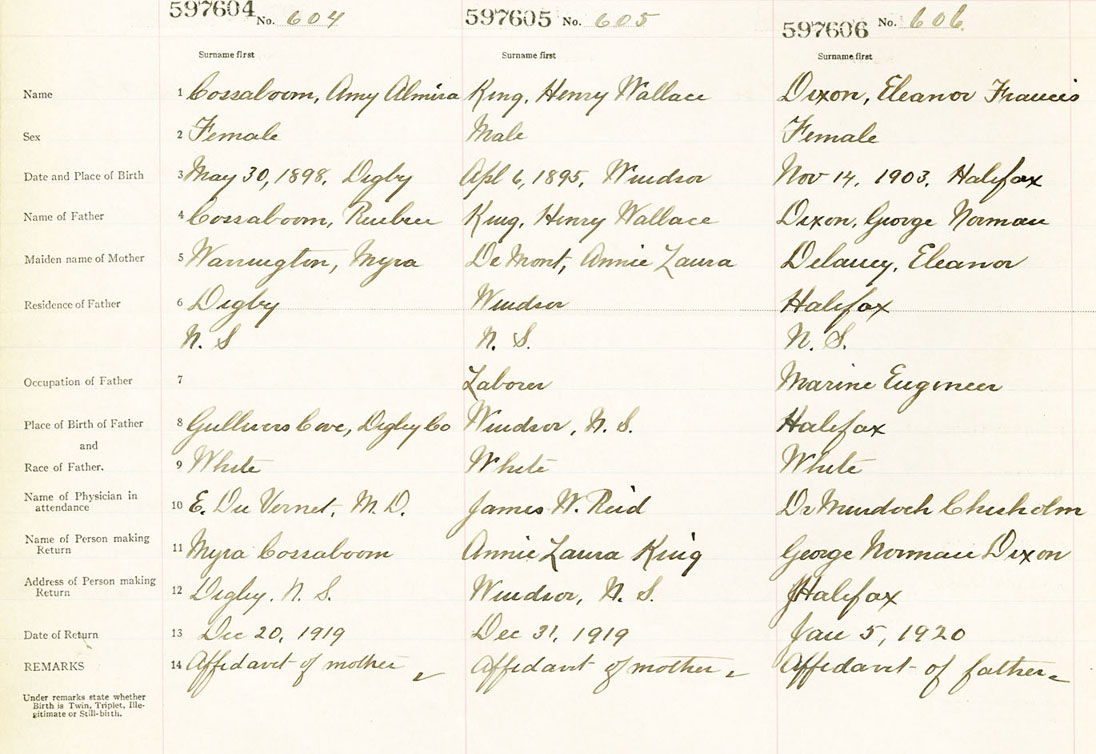 597604 No. 604 597605 No. 605 597606 No. 606
Surname first Surname first Surname first
Name 1 Cossaboom, Amy Almira King, Henry Wallace Dixon, Eleanor Francis
Sex 2 Female Male Female
Date and Place of Birth 3 May 30, 1898, Digby Apl 6, 1895, Windsor Nov 14, 1903, Halifax
Name of Father 4 Cossaboom, Reuben King, Henry Wallace Dixon, George Norman
Maiden name of Mother 5 Warrington, Myra De Mont, Annie Laura Delaney, Eleanor
Residence of Father 6 Digby Windsor Halifax
N. S N. S. N. S.
Occupation of Father 7 Laborer Marine Engineer
Place of Birth of Father 8 Gullivers Cove, Digby Co Windsor, N. S. Halifax
and
Race of Father. 9 White White White
Name of Physician in
attendance 10 E. Du Vernet, M. D. James W. Reid Dr Murdoch Chisholm
Name of Person making
Return 11 Myra Cossaboom Annie Laura King George Norman Dixon
Address of Person making
Return 12 Digby. N. S. Windsor, N. S. Halifax
Date of Return 13 Dec 20, 1919 Dec 31, 1919 Jan 5, 1920
REMARKS 14 Affidavit of mother Affidavit of mother Affidavit of father
Under remarks state whether
Birth is Twin, Triplet, Ille-
gitimate or Still-birth.